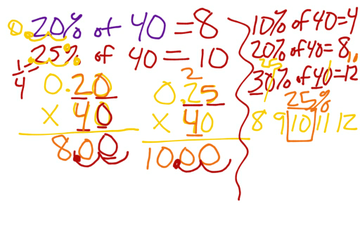 0.20% of 40 = 8
25% of 40 = 10
1/4
0.20
× 40
8.00
2
0.25
× 40
10.00
10% of 40 = 4
20% of 40 = 8
30% of 40 = 12
25%
8 9 10 11 12